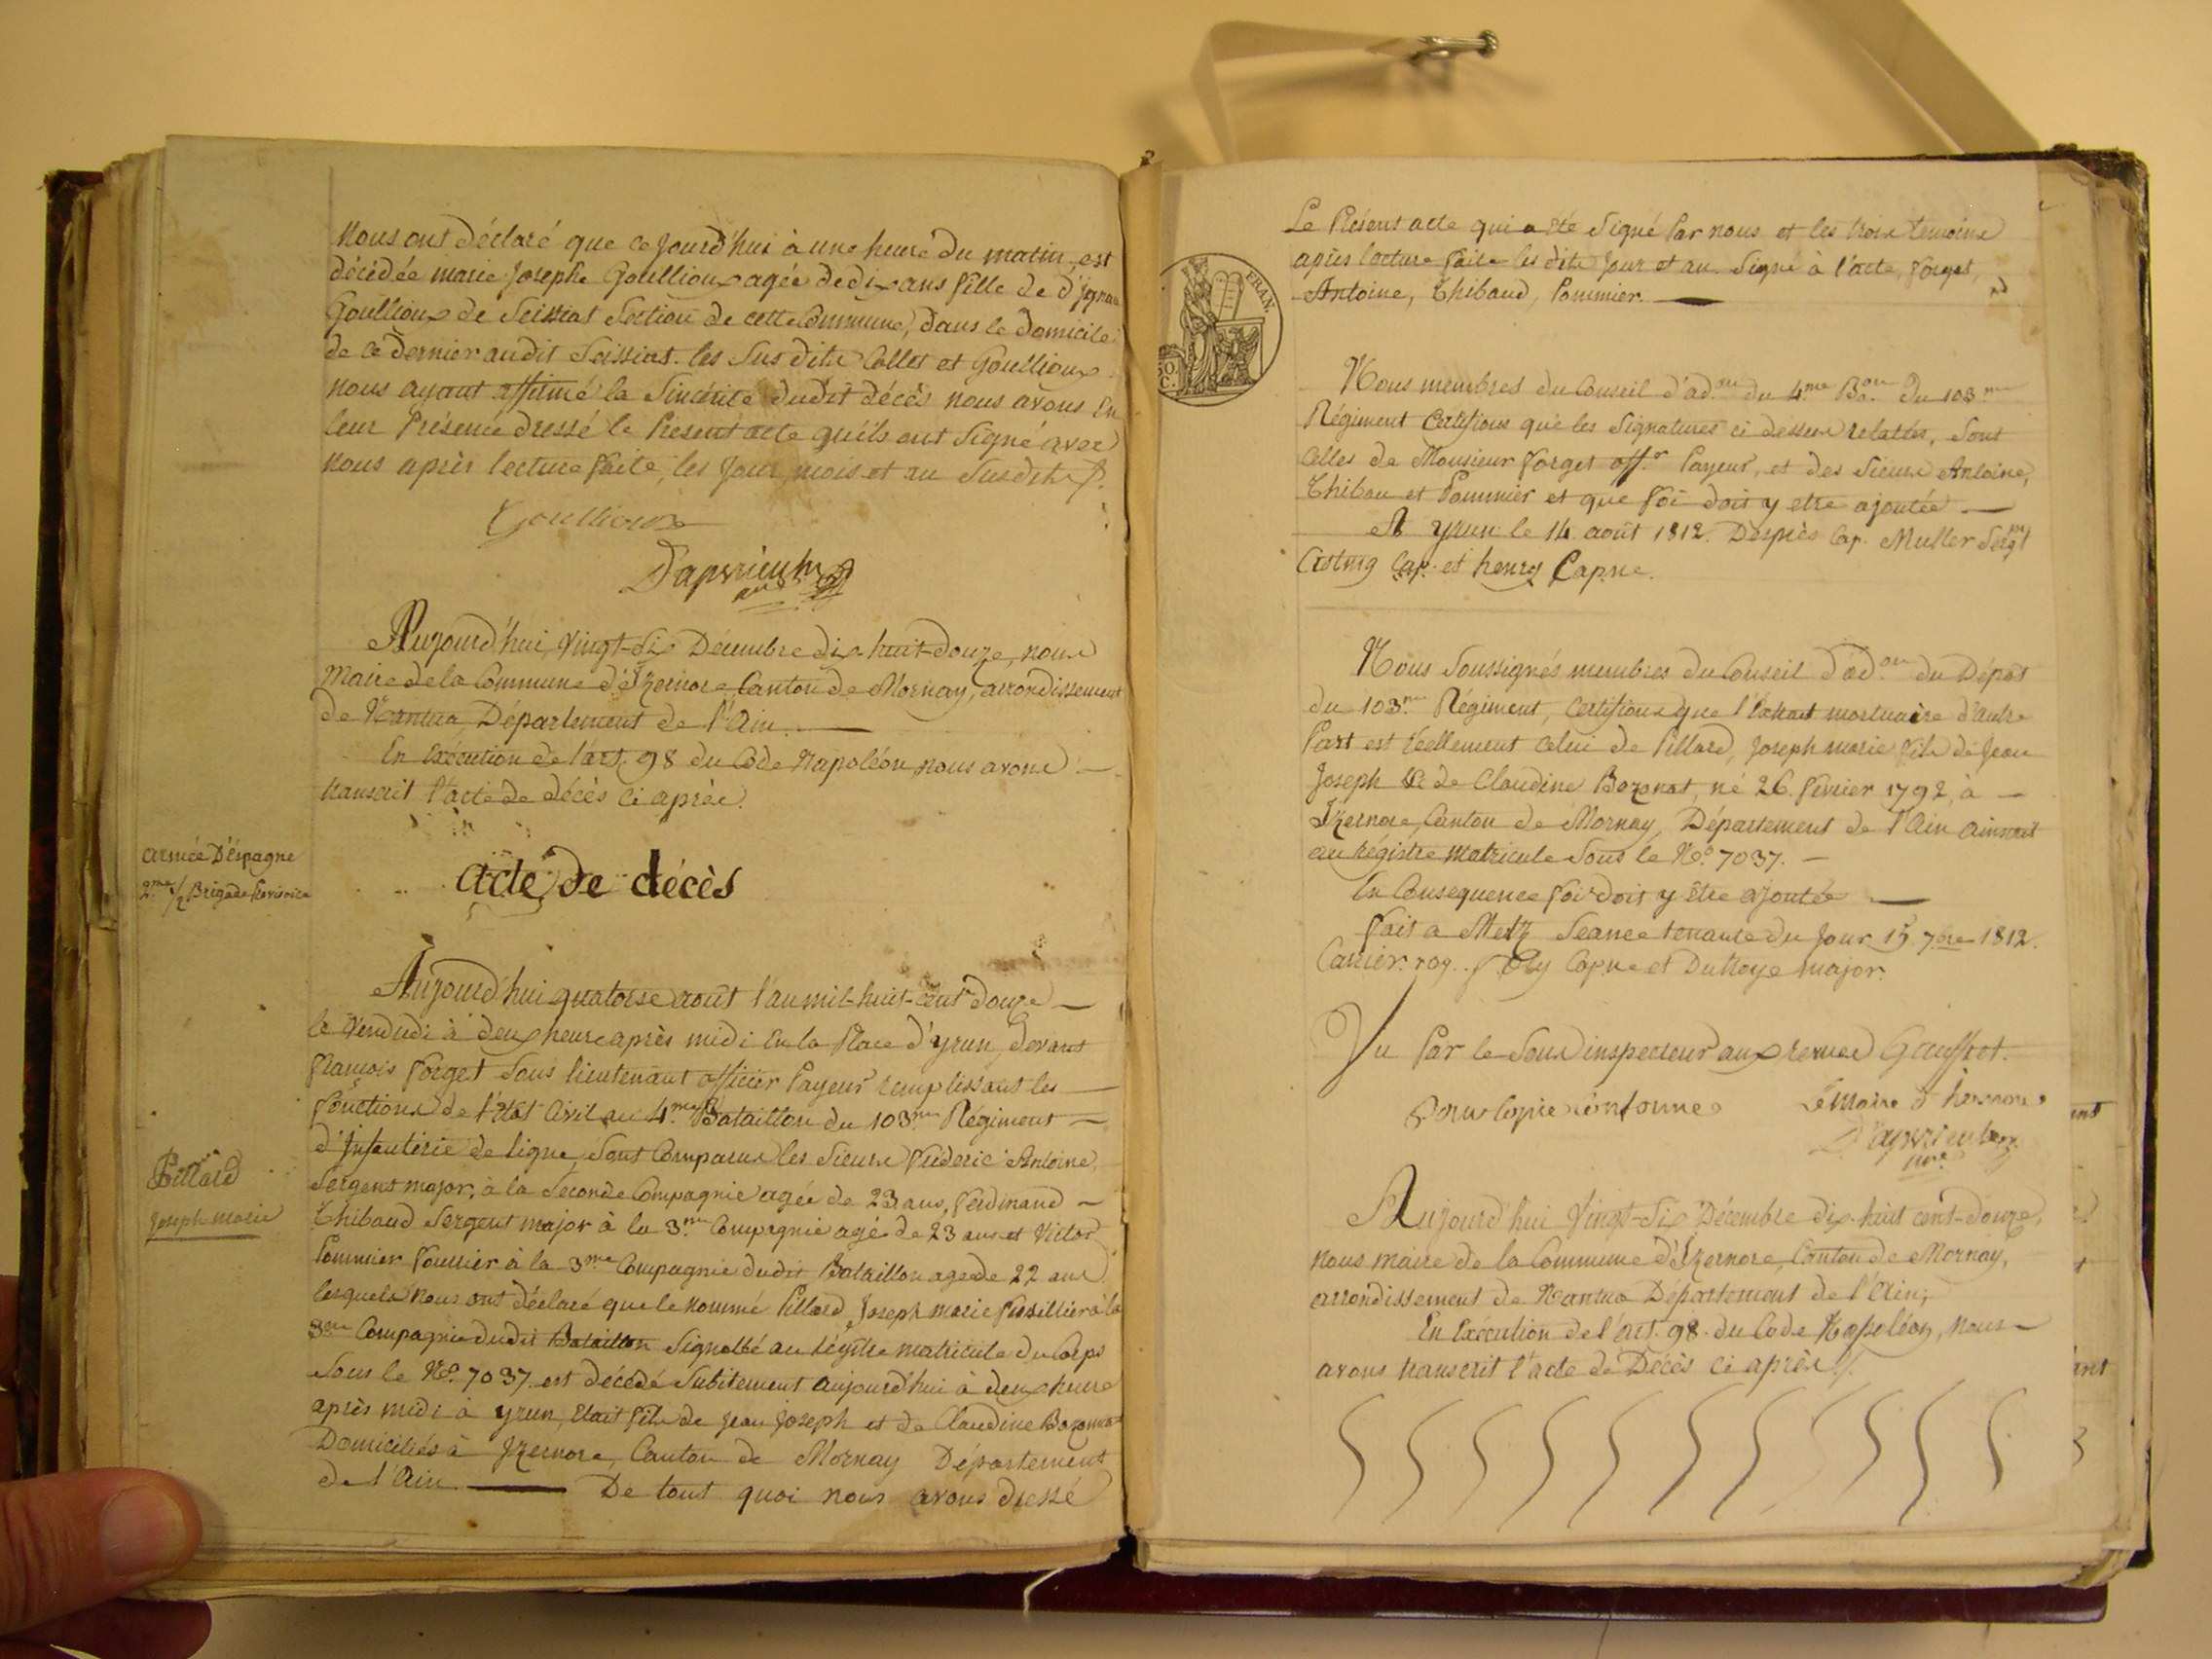 Nous ont déclaré que ce Jourd'hui à une heure du matin est
décédée marie Josephe Goullioux agée de dix ans fille de d'Ignace
Goullioux de Seissiat Section de cette Commune, dans le Domicile
de ce dernier audit Seissiat. les Sus dits Collet et Goullioux
nous ayant affirmé la Sincérité dudit décès nous avons En
leur Présence dressé le Présent acte qu'ils ont Signé avec
nous après lecture faite, les Jour, mois et an Susdits.
Goullioux
Aujourd'hui, Vingt-Six Décembre dix-huit-douze, nous
Maire de la Commune d'Izernore, Canton de Mornay, arrondissement
de Nantua, Département de l'Ain.
En Exécution de l'art. 98 du Code Napoléon, nous avons
transcrit l'acte de décès ci après.
armée D'éspagne
2.me 1/2 Brigade
acte de décès
Aujourd'hui quatorse août l'an mil-huit-cent douze
le Vendredi à deux heure après midi En la Place d'yrun, devant
François Forget Sous lieutenant officier Payeur remplissant les
fonctions de l'état Civil au 4.me Bataillon du 103.me Régiment
d'Infanterie de ligne, Sont Comparus les Sieurs Frideric Antoine,
Sergent major, à la Seconde Compagnie agée de 23 ans, ferdinand
Pillard
Joseph marie
Thibaud Sergent major à la 3.me Compagnie agé de 23 ans et Victor
Pommier fourrier à la 3.me Compagnie dudit Bataillon age de 22 ans
lesquels nous ont déclaré que le nommé Pillard, Joseph marie fusillier à la
3.me Compagnie dudit Bataillon Signalé au régistre matricule du Corps
Sous le N.o 7037 est décédé Subitement aujourd'hui à deux heure
après midi à yrun, Etait fils de Jean Joseph et de Claudine Bozonat
Domiciliés à Izernore, Canton de Mornay Département
de l'Ain. De tout quoi nous avons dressé
Le Présent acte qui a été Signé Par nous et les trois temoins
après lecture faite les dits Jour et an. Signé à l'acte, Forget,
Antoine, Thibaud, Pommier.
FRAN.
50.
C.
Nous membres du Conseil d'ad.on du 4.me B.on du 103.me
Régiment Certifions que les Signatures ci dessus relatées, Sont
Celles de Monsieur Forget off.r Payeur, et des Sieurs Antoine,
Thibau et Pommier et que foi doit y etre ajoutée
A yrun le 14 août 1812. Desprès Cap. Muller Serg.t
Cap. et henry Cap.ne.
Nous Soussignés membres du Conseil d'ad.on du Dépot
du 103.me Régiment, Certifions que l'Extrait mortuaire d'autre
Part est réellement celui de Pillard, Joseph marie fils de Jean
Joseph & de Claudine Bozonat, né 26. fevrier 1792, à
Izernore, Canton de Mornay, Département de l'Ain ainsi
au régistre matricule Sous le N.o 7037.
En Consequence foi doit y être ajoutée
Fait a Metz Seance tenante du Jour 15 7.bre 1812.
Cap.ne et Dutroye major.
Vu Par le Sous inspecteur aux revues
Pour Copie conforme
Le Maire
Aujourd'hui Vingt-Six Décembre dix-huit cent-douze,
nous maire de la Commune d'Izernore, Canton de Mornay,
arrondissement de Nantua Département de l'Ain,
En Exécution de l'art. 98. du Code Napoléon, nous
avons transcrit l'acte de Décès ci après